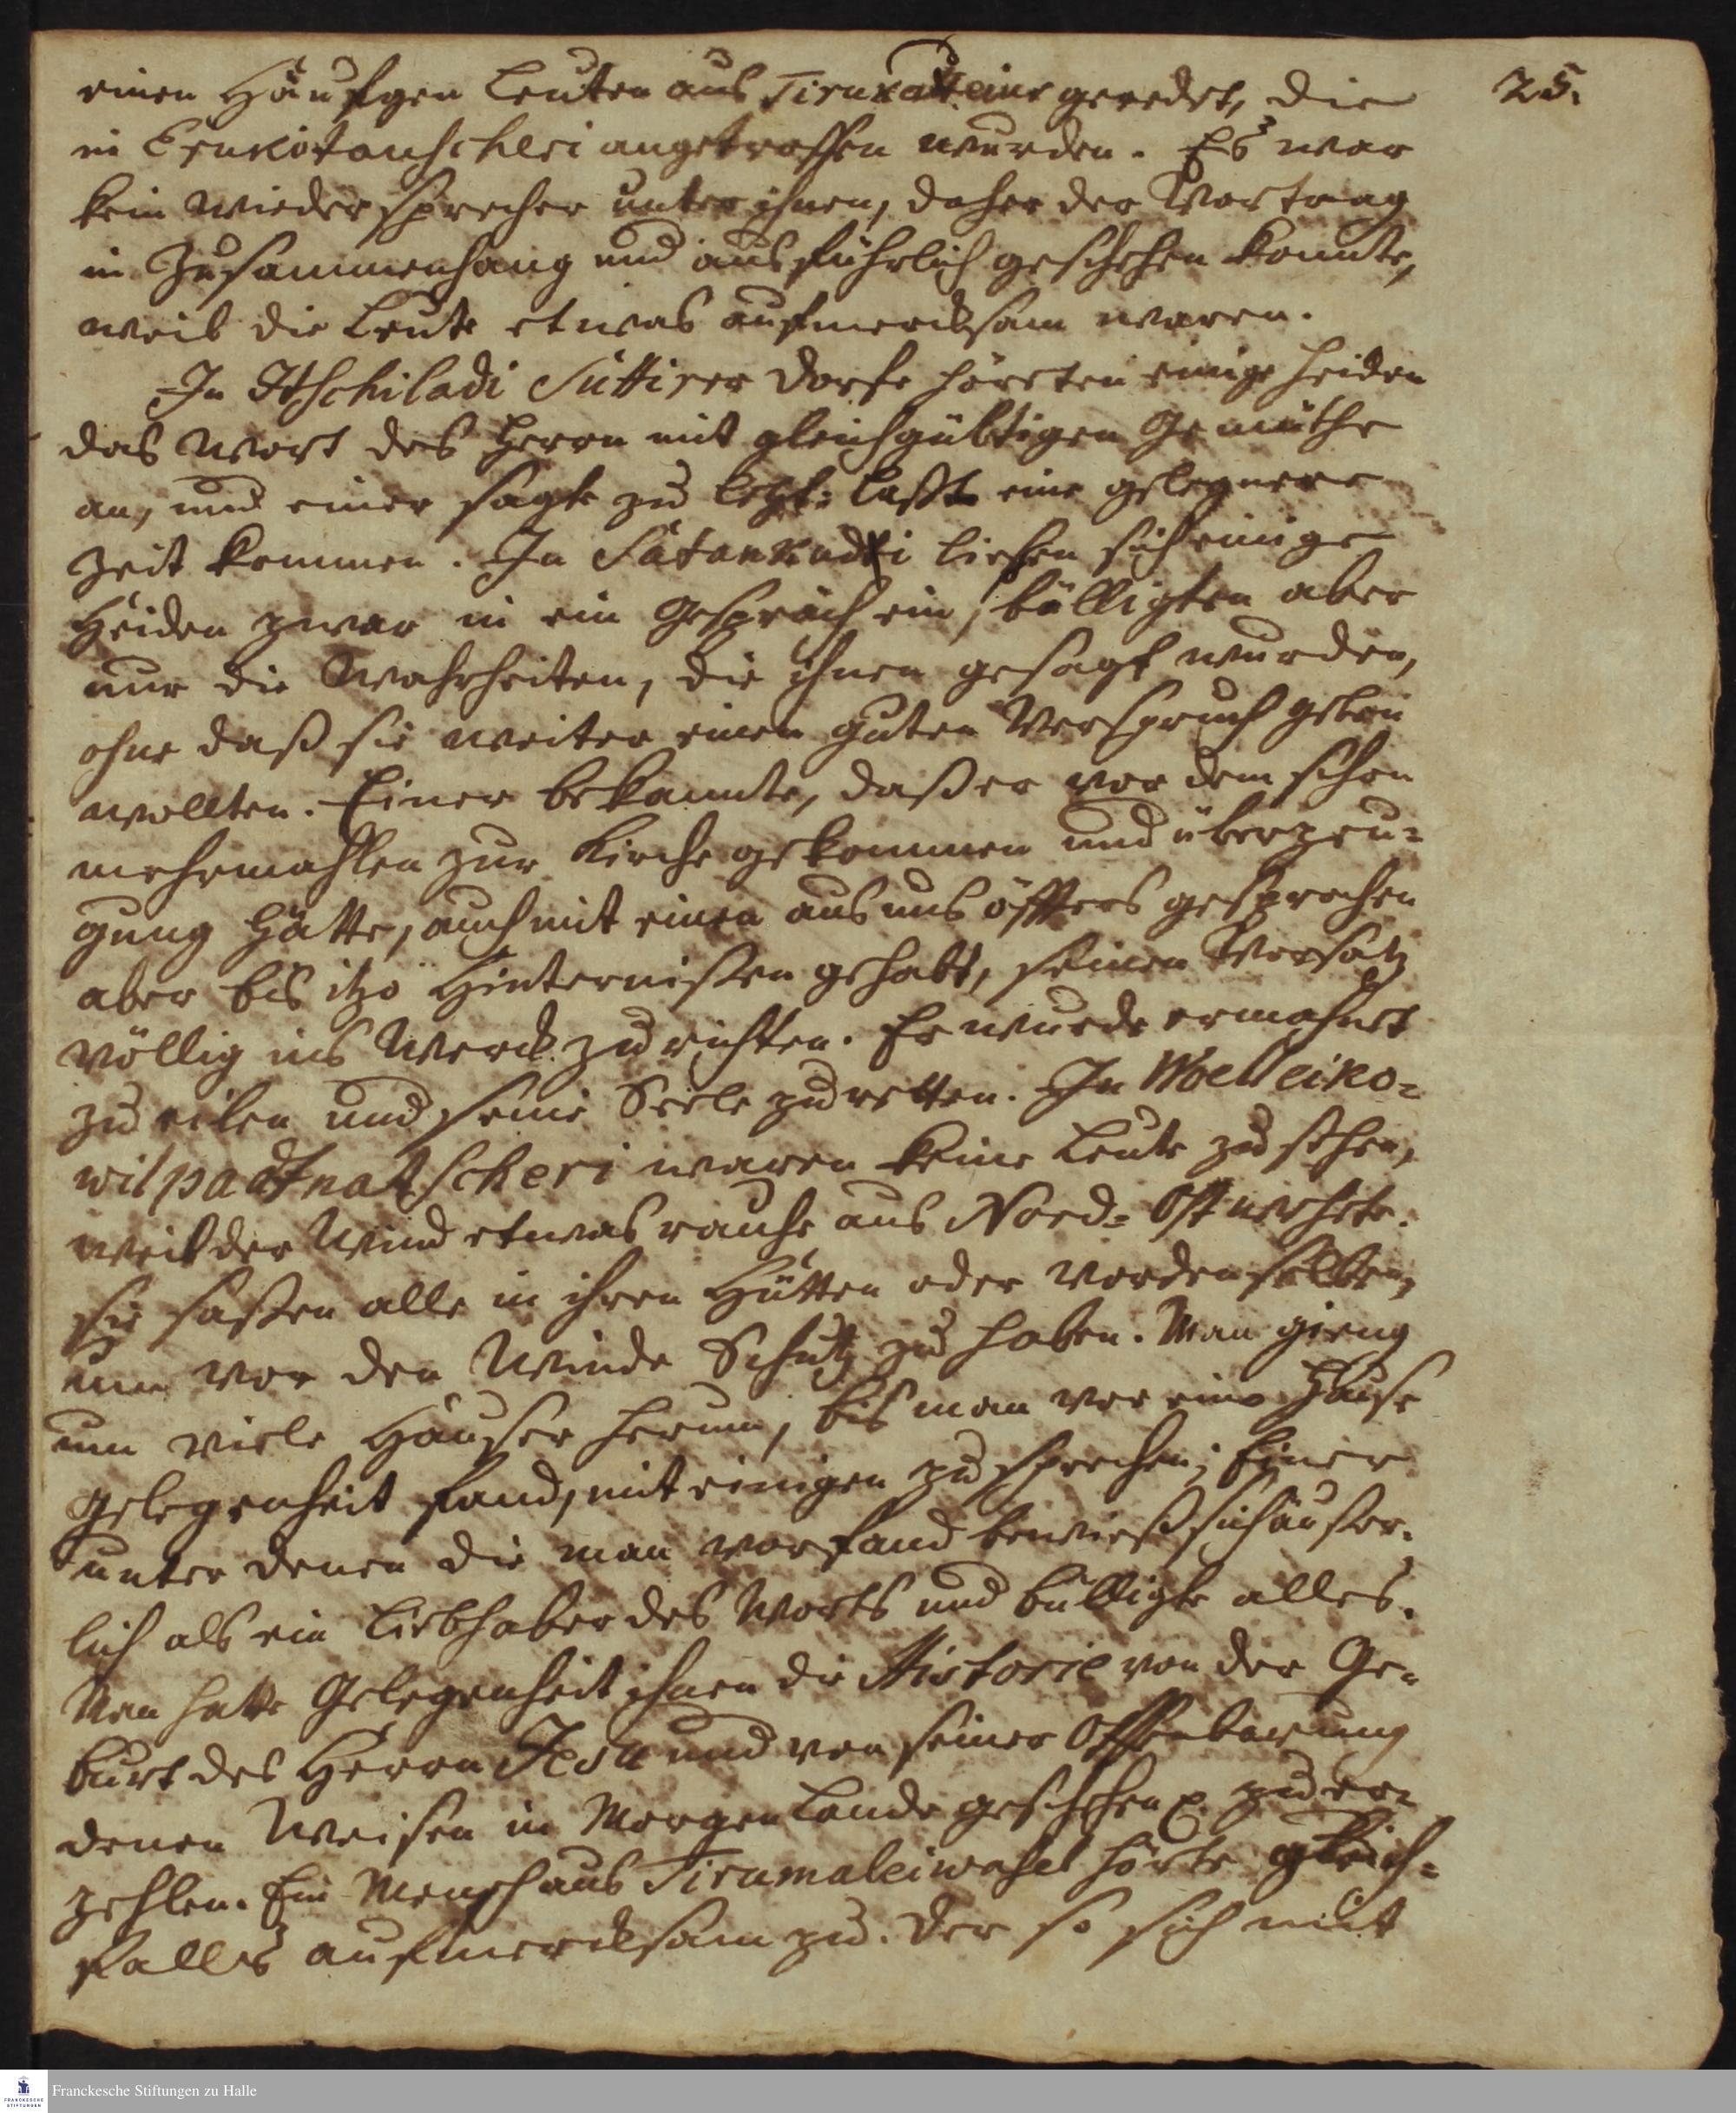 25.
einen Häuffgen Leuten aus geredet, die
in Erukótanscheri angetroffen wurden. Es war
kein wiedersprecher unter ihnen, daher der Vortrag
in Zusammenhang und ausführlich geschehen konnte,
weil die Leute etwas aufmercksam waren.
In Itschiladi Suttirer Dorfe hörten einige Heiden
das Wort des Herrn mit gleichgültigen Gemüthe
an, und einer sagte zu letzt: laßt eine gelegnere
Zeit kommen. In liesen sich einige
Heiden zwar in ein Gespräch ein, billigten aber
nur die Wahrheiten, die ihnen gesagt wurden,
ohne daß sie weiter einen guten Verspruch geben
wollten. Einer bekannte, daß er vor dem schon
mehrmahlen zur Kirche gekommen und überzeu-
gung hätte, auch mit einen aus uns öffters gesprochen
aber bis itzo Hinternißen gehabt, seinen Vorsatz
völlig ins Werck zu richten. Er wurde ermahnet
zu eilen und seine Seele zu retten. In Woelleiko-
wilpadtnatscheri waren keine Leute zu sehen,
weil der Wind etwas rauhe aus Nord-Ost wehete.
Sie saßen alle in ihren Hütten oder vor denselben,
um vor den Winde Schutz zu haben. Man gieng
um viele Häuser herum, bis man vor eine Hause
Gelegenheit fand, mit einigen zu sprechen; Einer
unter denen die man vorfand bewieß sich äußer-
lich als ein Liebhaber des Worts und billigte alles.
Man hatte Gelegenheit ihnen die Historie von der Ge-
burt des Herrn Jesu und von seiner Offenbarung
denen Weisen in Morgenlande geschehen zu er-
zehlen. Ein Mensch aus Tirumaleiwasel hörte gleich-
falls aufmercksam zu. Der so sich mit
Franckesche Stiftungen zu Halle
FRANCKESCHE
STIFTUNGEN